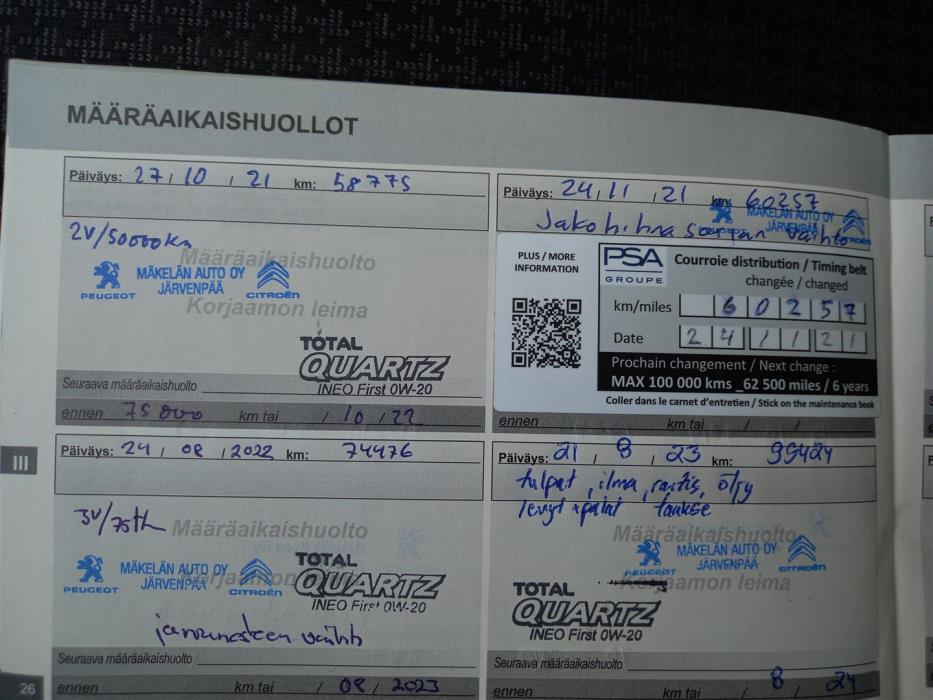 MÄÄRÄAIKAISHUOLLOT
Päiväys: 27 / 10 / 21 km: 58775
2V/50000km
Määräaikaishuolto
MÄKELÄN AUTO OY
JÄRVENPÄÄ
PEUGEOT CITROËN
Korjaamon leima
TOTAL
QUARTZ
INEO First 0W-20
Seuraava määräaikaishuolto
ennen 75000 km tai / 10 / 22
Päiväys: 24 / 11 / 21 km: 60257
MÄKELÄN AUTO OY
JÄRVENPÄÄ
Jakohihna sarjan vaihto
PLUS / MORE
INFORMATION
PSA
GROUPE
Courroie distribution / Timing belt
changée / changed
km/miles 60257
Date 24 11 21
Prochain changement / Next change :
MAX 100 000 kms _62 500 miles / 6 years
Coller dans le carnet d'entretien / Stick on the maintenance book
ennen km tai / /
III
Päiväys: 24 / 08 / 2022 km: 74476
3V/75th
Määräaikaishuolto
MÄKELÄN AUTO OY
JÄRVENPÄÄ
PEUGEOT CITROËN
Korjaamon leima
TOTAL
QUARTZ
INEO First 0W-20
jarrunesteen vaihto
Seuraava määräaikaishuolto
ennen km tai / 08 / 2023
Päiväys: 21 / 8 / 23 km: 99424
tulpat, ilma, raitis, öljy
levyt + palat taakse
Määräaikaishuolto
MÄKELÄN AUTO OY
JÄRVENPÄÄ
PEUGEOT CITROËN
Korjaamon leima
TOTAL
QUARTZ
INEO First 0W-20
Seuraava määräaikaishuolto
ennen km tai / 8 / 24
26